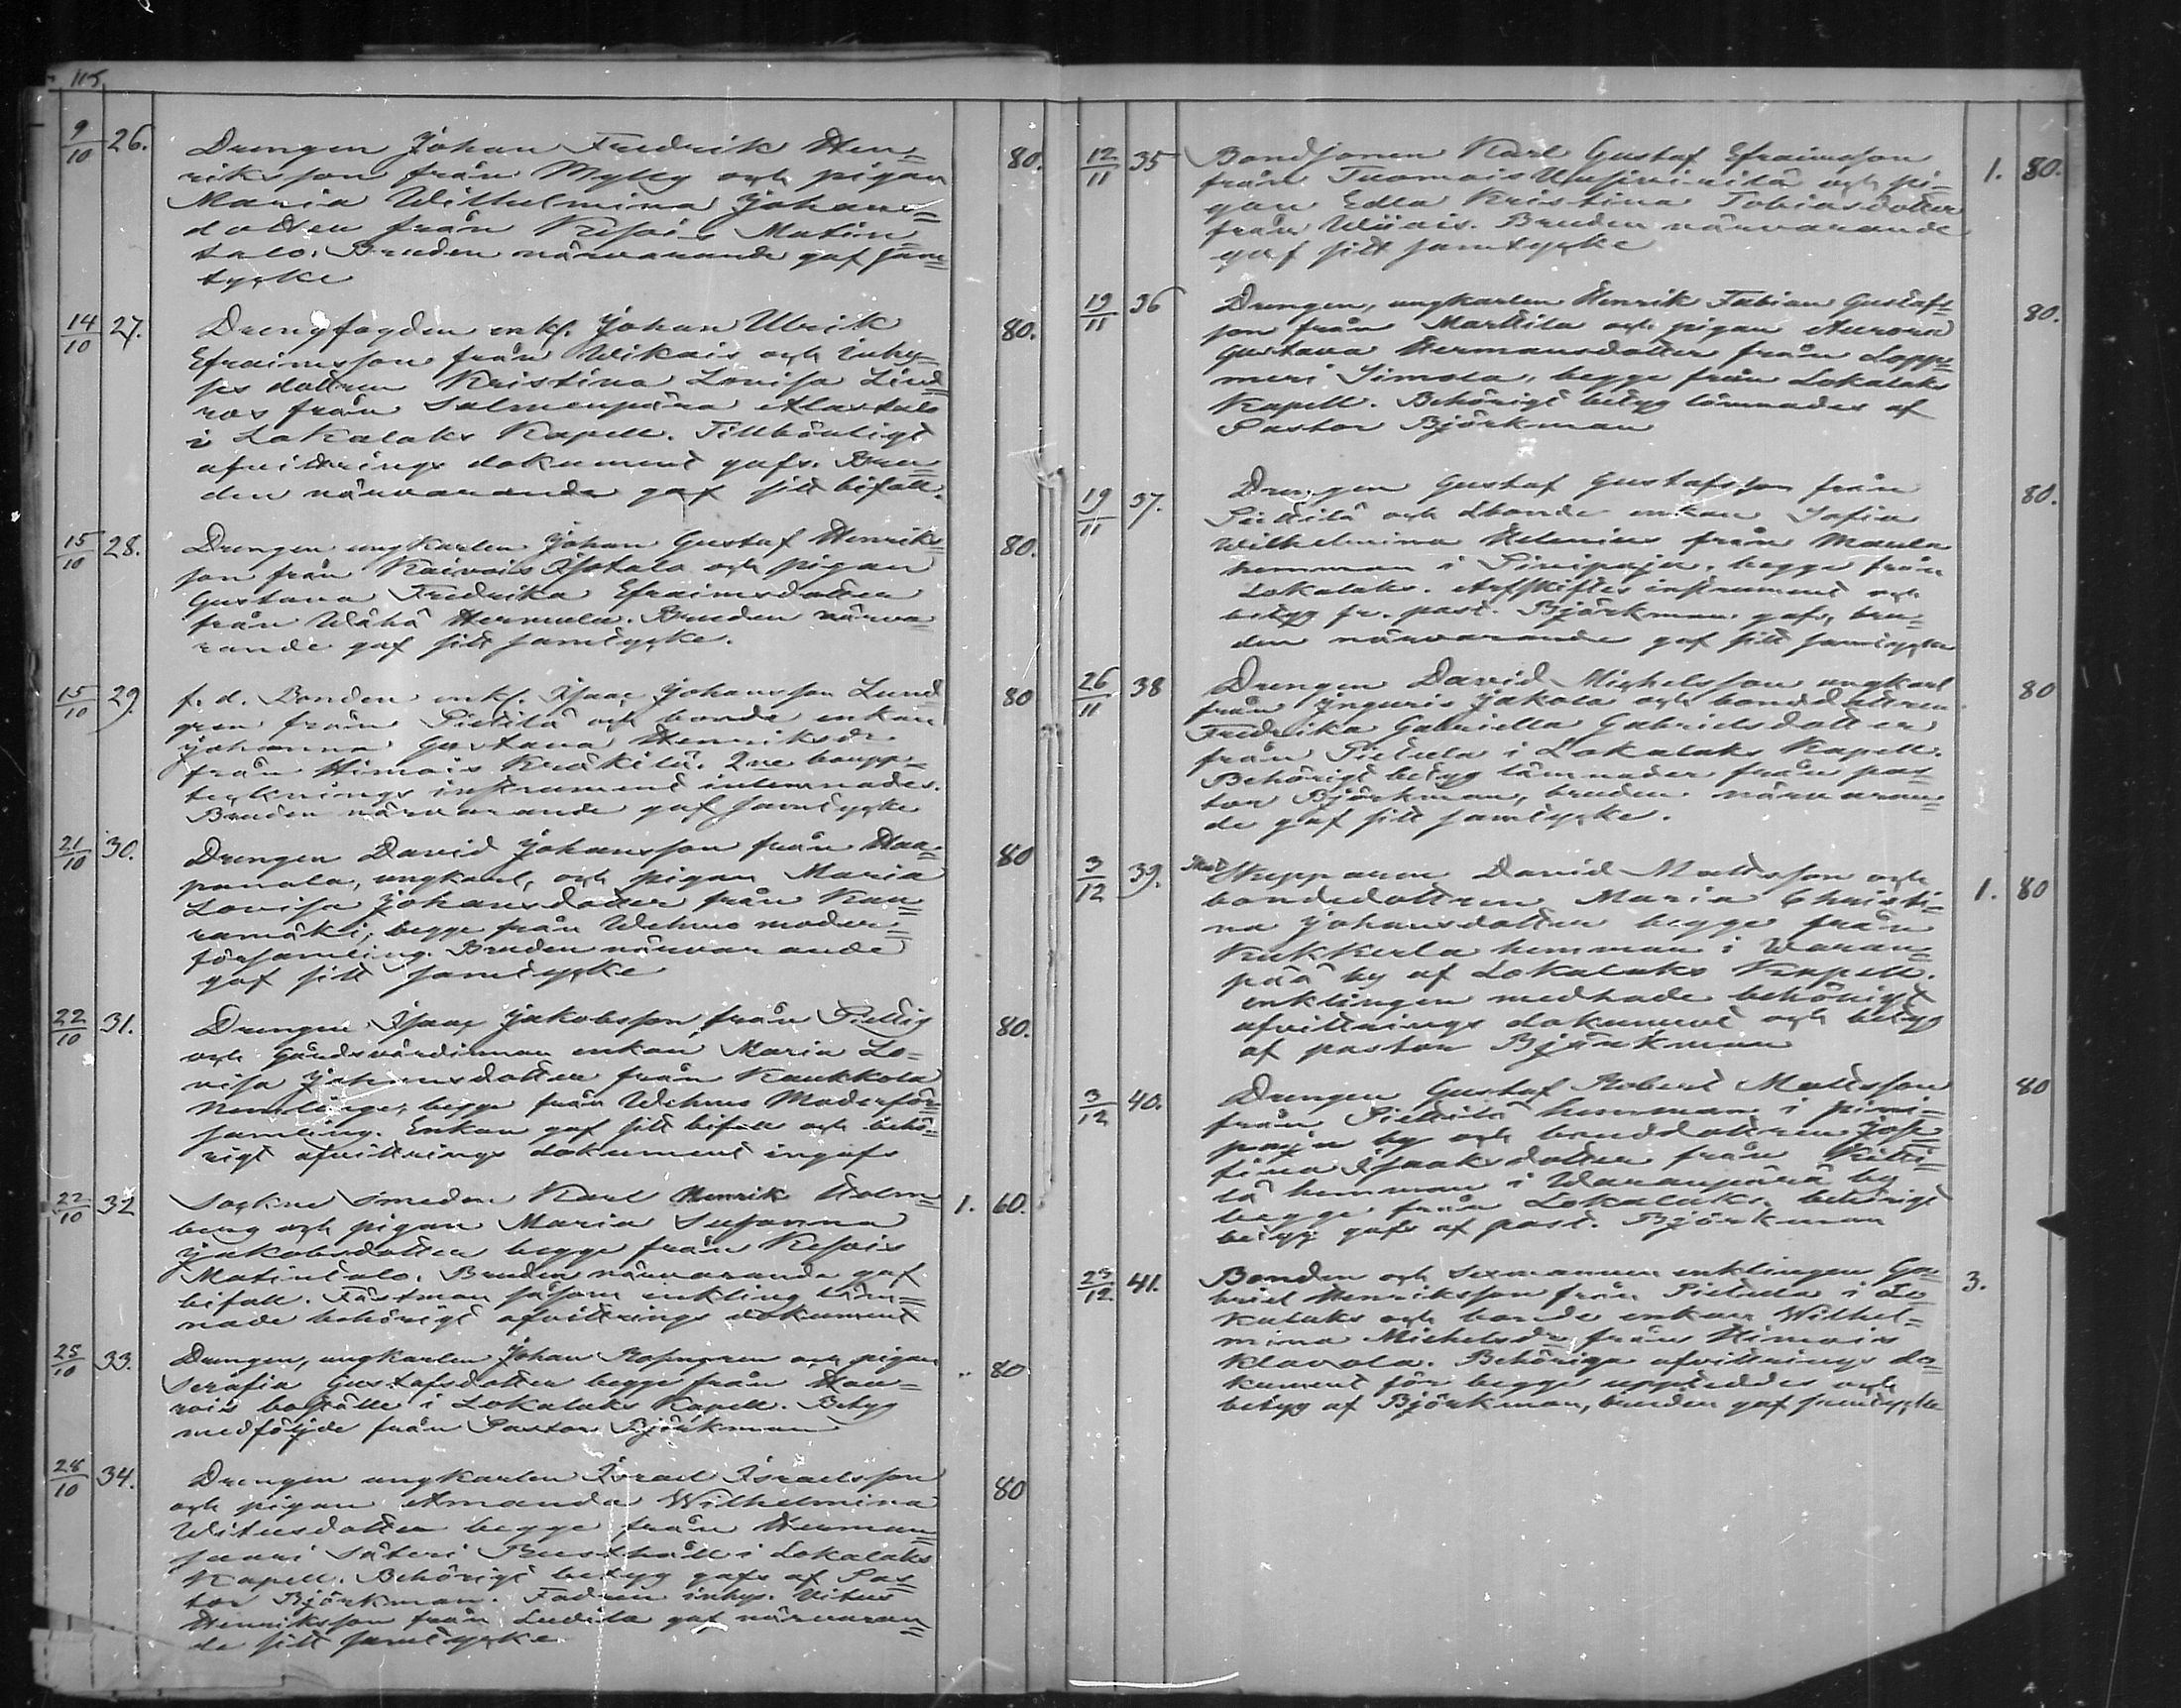 115
9/10 26. Drengen Johan Fredrik Hen= 80.
riksson från Mylly och pigan
Maria Wilhelmina Johans=
dotter från Kesois Matin
talo. Bruden närvarande gaf sam=
tycke
14/10 27. Drengfogden enkl. Johan Ulrik 80.
Efraimsson från Wikais och inhy=
ses dottren Kristina Lovisa Lind
ros från Salmenpära Alastalo
i Lokalaks Kapell. Tillbörligt
afvittrings dokument gafs. Bru=
den närvarande gaf sitt bifall.
15/10 28. Drengen ungkarlen Johan Gustaf Henriks= 80.
son från Kaivois Isotalo och pigan
Gustava Fredrika Efraimsdotter
från Wähä Hermula. Bruden närva=
rande gaf sitt samtycke.
15/10 29. f. d. Bonden enkl. Isaac Johansson Lund 80
gren från Pietilä och bonde enkan
Johanna Gustava Henriksdr
från Himois Kräkilä. 2ne boupp=
tecknings instrument inlemnades.
Bruden närvarande gaf samtycke
21/10 30. Drengen David Johansson från Haa= 80
panala, ungkarl, och pigan Maria
Lovisa Johansdotter från Kan=
ramäki, begge från Wehmo moder=
församling. Bruden närvarande
gaf sitt samtycke
22/10 31. Drengen Isaac Jakobsson från 80.
och Gårdsvärdinnan enkan Maria Lo=
visa Johansdotter från Kaukkola
Nemlinge, begge från Wehmo Moderför=
samling. Enkan gaf sitt bifall och behö=
rigt afvittrings dokument ingafs
22/10 32 Sockne smeden Karl Henrik Holm= 1. 60.
berg och pigan Maria Susanna
Jakobsdotter begge från Kesois
Matintalo. Bruden närvarande gaf
bifall. Fästman såsom enkling läm=
nade behörigt afvittrings dokument
25/10 33. Drengen, ungkarlen Johan Rosngren och pigan .. 80
Serafia Gustafsdotter begge från Hau=
rois boställe i Lokalaks Kapell. Betyg
medföljde från Pastor Björkman
28/10 34. Drengen ungkarlen Israel Israelsson 80
och pigan Amanda Wilhelmina
Witusdotter begge från Herman=
saari Säteri Rusthåll i Lokalaks
Kapell. Behörigt betyg gafs af Pas=
tor Björkman. Fadren inhys. Vitus
Henriksson från Ludila gaf närvaran=
de sitt samtycke
12/11 35 Bondsonen Karl Gustaf Efraimsson 1. 80.
från Tuomois och pi=
gan Edla Kristina Tobiasdotter
från Wiiais. Bruden närvarande
gaf sitt samtycke
19/11 36 Drengen, ungkarlen Henrik Fabian Gustafs= 80.
son från Marttila och pigan Aurora
Gustava Hermansdotter från Lapp=
meri Simola, begge från Lokalaks
Kapell. Behörigt betyg lämnades af
Pastor Björkman
19/11 37. Drengen Gustaf Gustafsson från 80.
Pietilä och bonde enkan Sofia
Wilhelmina Helenius från Maula
hemman i Pinipaja, begge från
Lokalaks. Arfskiftes instrument och
betyg fr. past. Björkman gafs, bru=
den närvarande gaf sitt samtycke
26/11 38 Drengen David Michelsson ungkarl 80
från Ynguris Jakola och bonddottren
Fredrika Gabriella Gabrielsdotter
från Pietula i Lokalaks Kapell.
Behörigt betyg lämnades från pas=
tor Björkman, bruden närvaran=
de gaf sitt samtycke.
3/12 39. Skepparen David Mattsson och 1. 80
bondedottren Maria Christi=
na Johansdotter begge från
Kukkerla hemman i Waran=
pää by af Lokalaks Kapell.
enklingen medhade behörigt
afvittrings dokument och betyg
af pastor Björkman
3/12 40. Drengen Gustaf Robert Mattsson 80
från Pietilä hemman i pini=
paja by och bonddottren Jose
fina Isaaksdotter från Kitti=
lä hemman i Waranpää by
begge från Lokalaks. behörigt
betyg gafs af past. Björkman
25/12. 41. Bonden och Sexmannen enklingen Ga= 3.
briel Henriksson från Pietula i Lo
kalaks och bonde enkan Wilhel=
mina Michelsdr från Himois
Klavola. Behöriga afvittrings do=
kument för begge uppteddes och
betyg af Björkman, bruden gaf samtycke